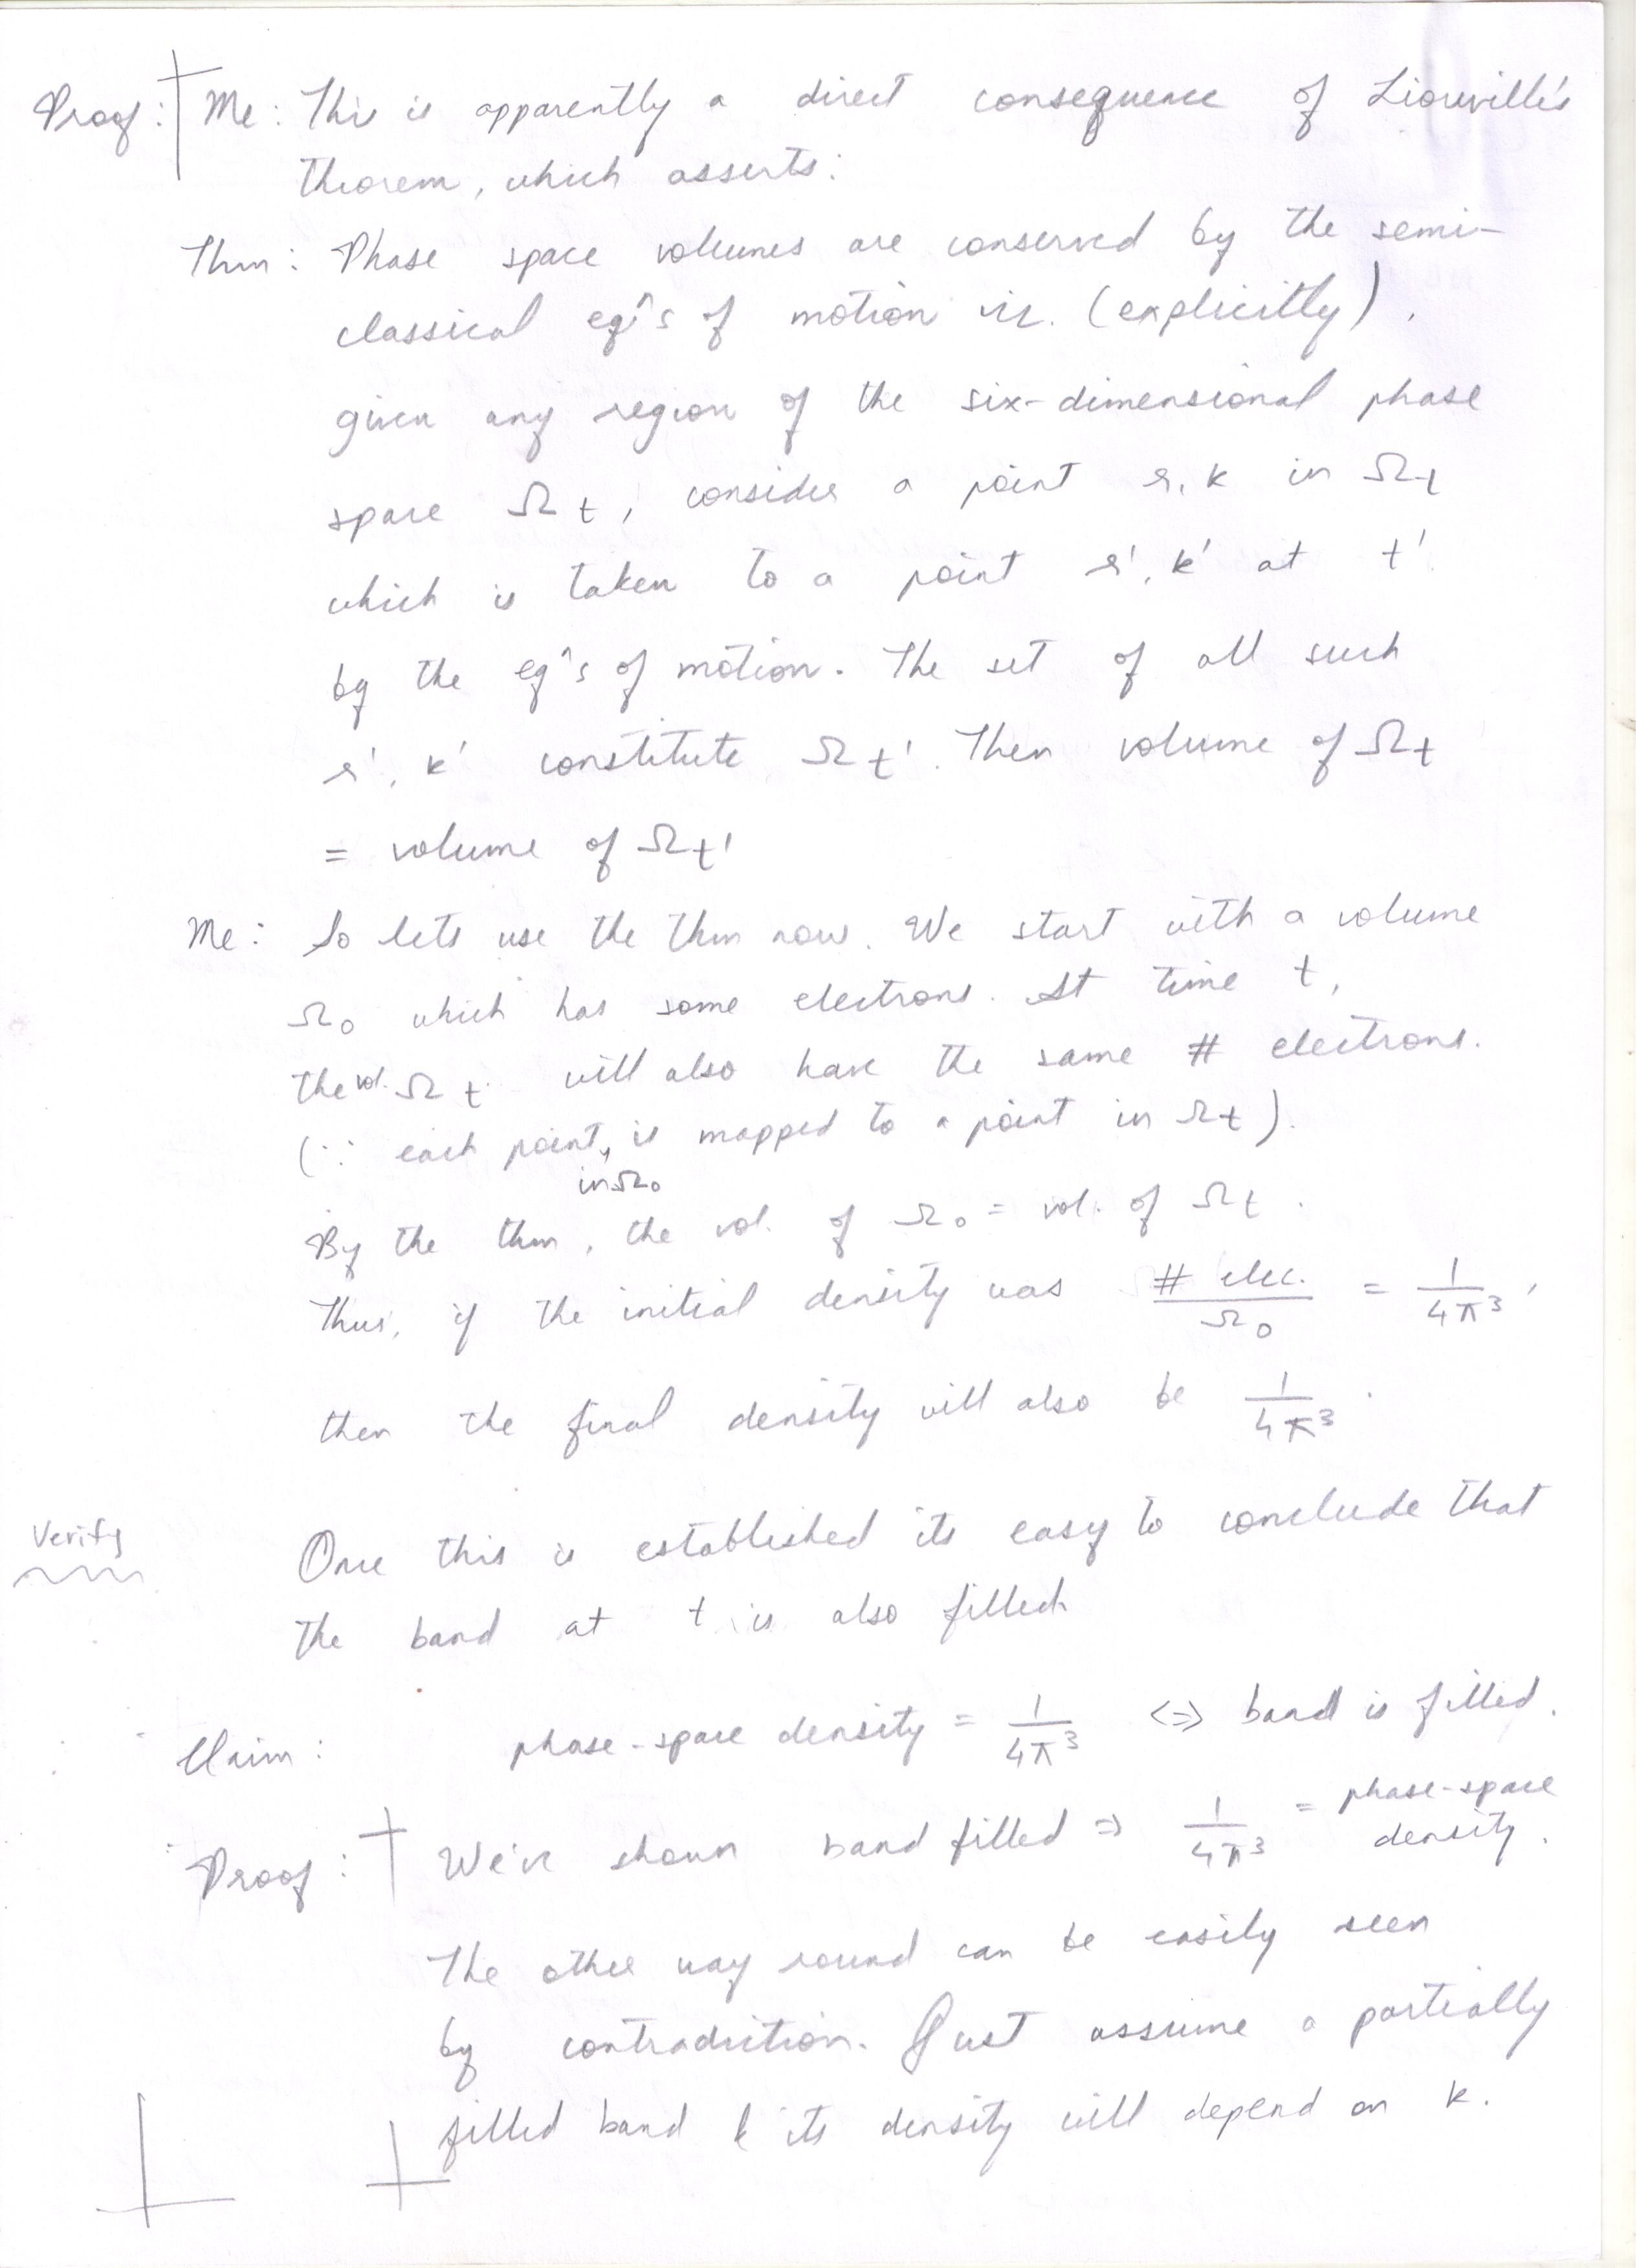 Proof: Me: This is apparently a direct consequence of Liouville's
theorem, which asserts:
Thm: Phase space volumes are conserved by the semi-
classical eqⁿs of motion viz. (explicitly),
given any region of the six-dimensional phase
space Ωt, consider a point r, k in Ωt
which is taken to a point r', k' at t'
by the eqⁿs of motion. The set of all such
r', k' constitute Ωt'. Then volume of Ωt
= volume of Ωt'
Me: So lets use the thm now. We start with a volume
Ω₀ which has some electrons. At time t,
the vol. Ωt will also have the same # electrons.
(∵ each point in Ω₀ is mapped to a point in Ωt).
By the thm, the vol. of Ω₀ = vol. of Ωt.
Thus, if the initial density was # elec. / Ω₀ = 1/4π³,
then the final density will also be 1/4π³.
Verify
Once this is established its easy to conclude that
the band at t is also filled
Claim: phase-space density = 1/4π³ <=> band is filled.
Proof: We've shown band filled => 1/4π³ = phase-space density.
The other way round can be easily seen
by contradiction. Just assume a partially
filled band & its density will depend on k.